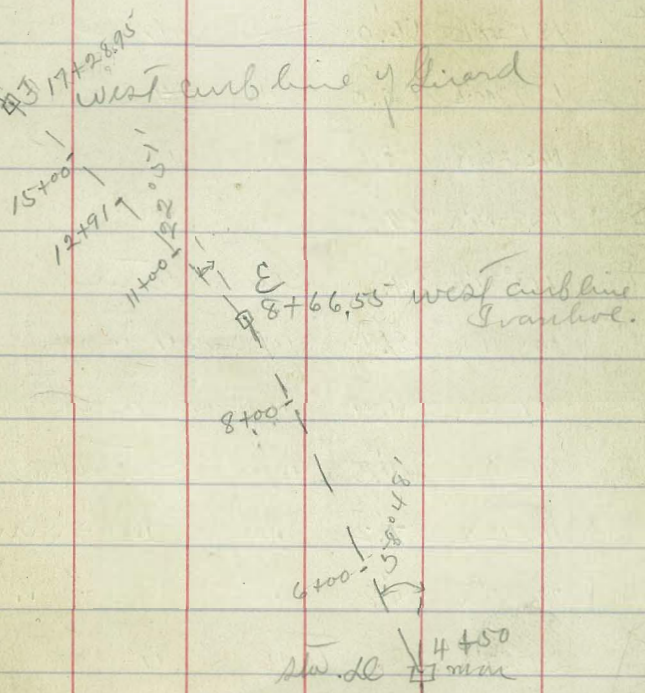 17+28.95
west curb line of Girard
15+00
22°51'
12+91
11+00
8+66.55 west curb line
Ivanhoe.
8+00
58°48'
6+00
4+50
sta. mon